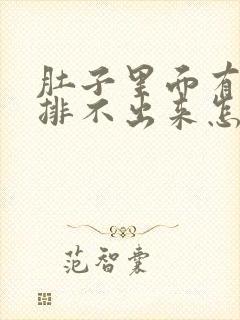 肚子里面有
排不出来怎
范智囊